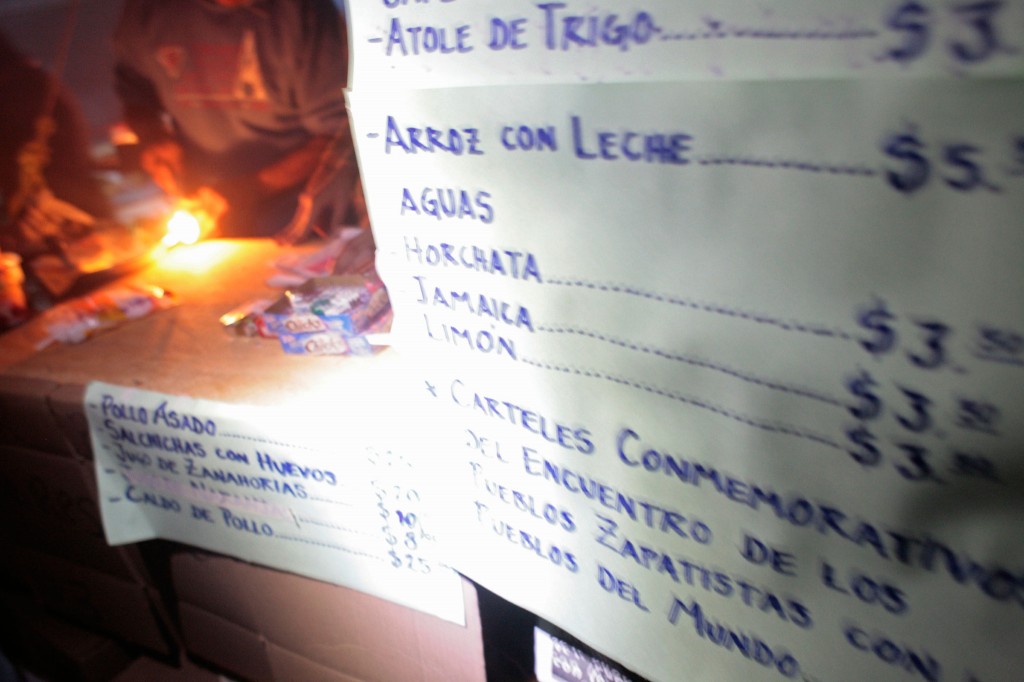 - ATOLE DE TRIGO.......... $3.
- ARROZ CON LECHE.......... $5.
AGUAS
- HORCHATA.......... $3.50
- JAMAICA.......... $3.50
LIMÓN.......... $3.50
* CARTELES CONMEMORATIVOS
DEL ENCUENTRO DE LOS
PUEBLOS ZAPATISTAS CON
PUEBLOS DEL MUNDO..
- POLLO ASADO..........
SALCHICHAS CON HUEVOS
- JUGO DE ZANAHORIAS.......... $10
$8
- CALDO DE POLLO.......... $25